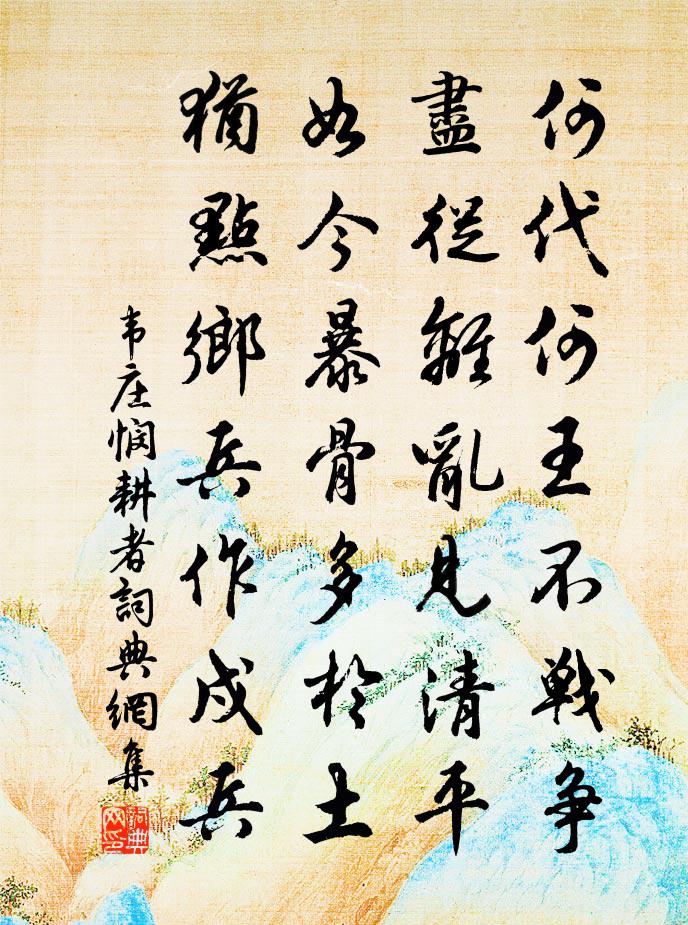 何代何王不戰争
盡從離亂見清平
如今暴骨多於土
猶點鄉兵作戍兵
韦庄悯耕者詞典網集
詞典
网印